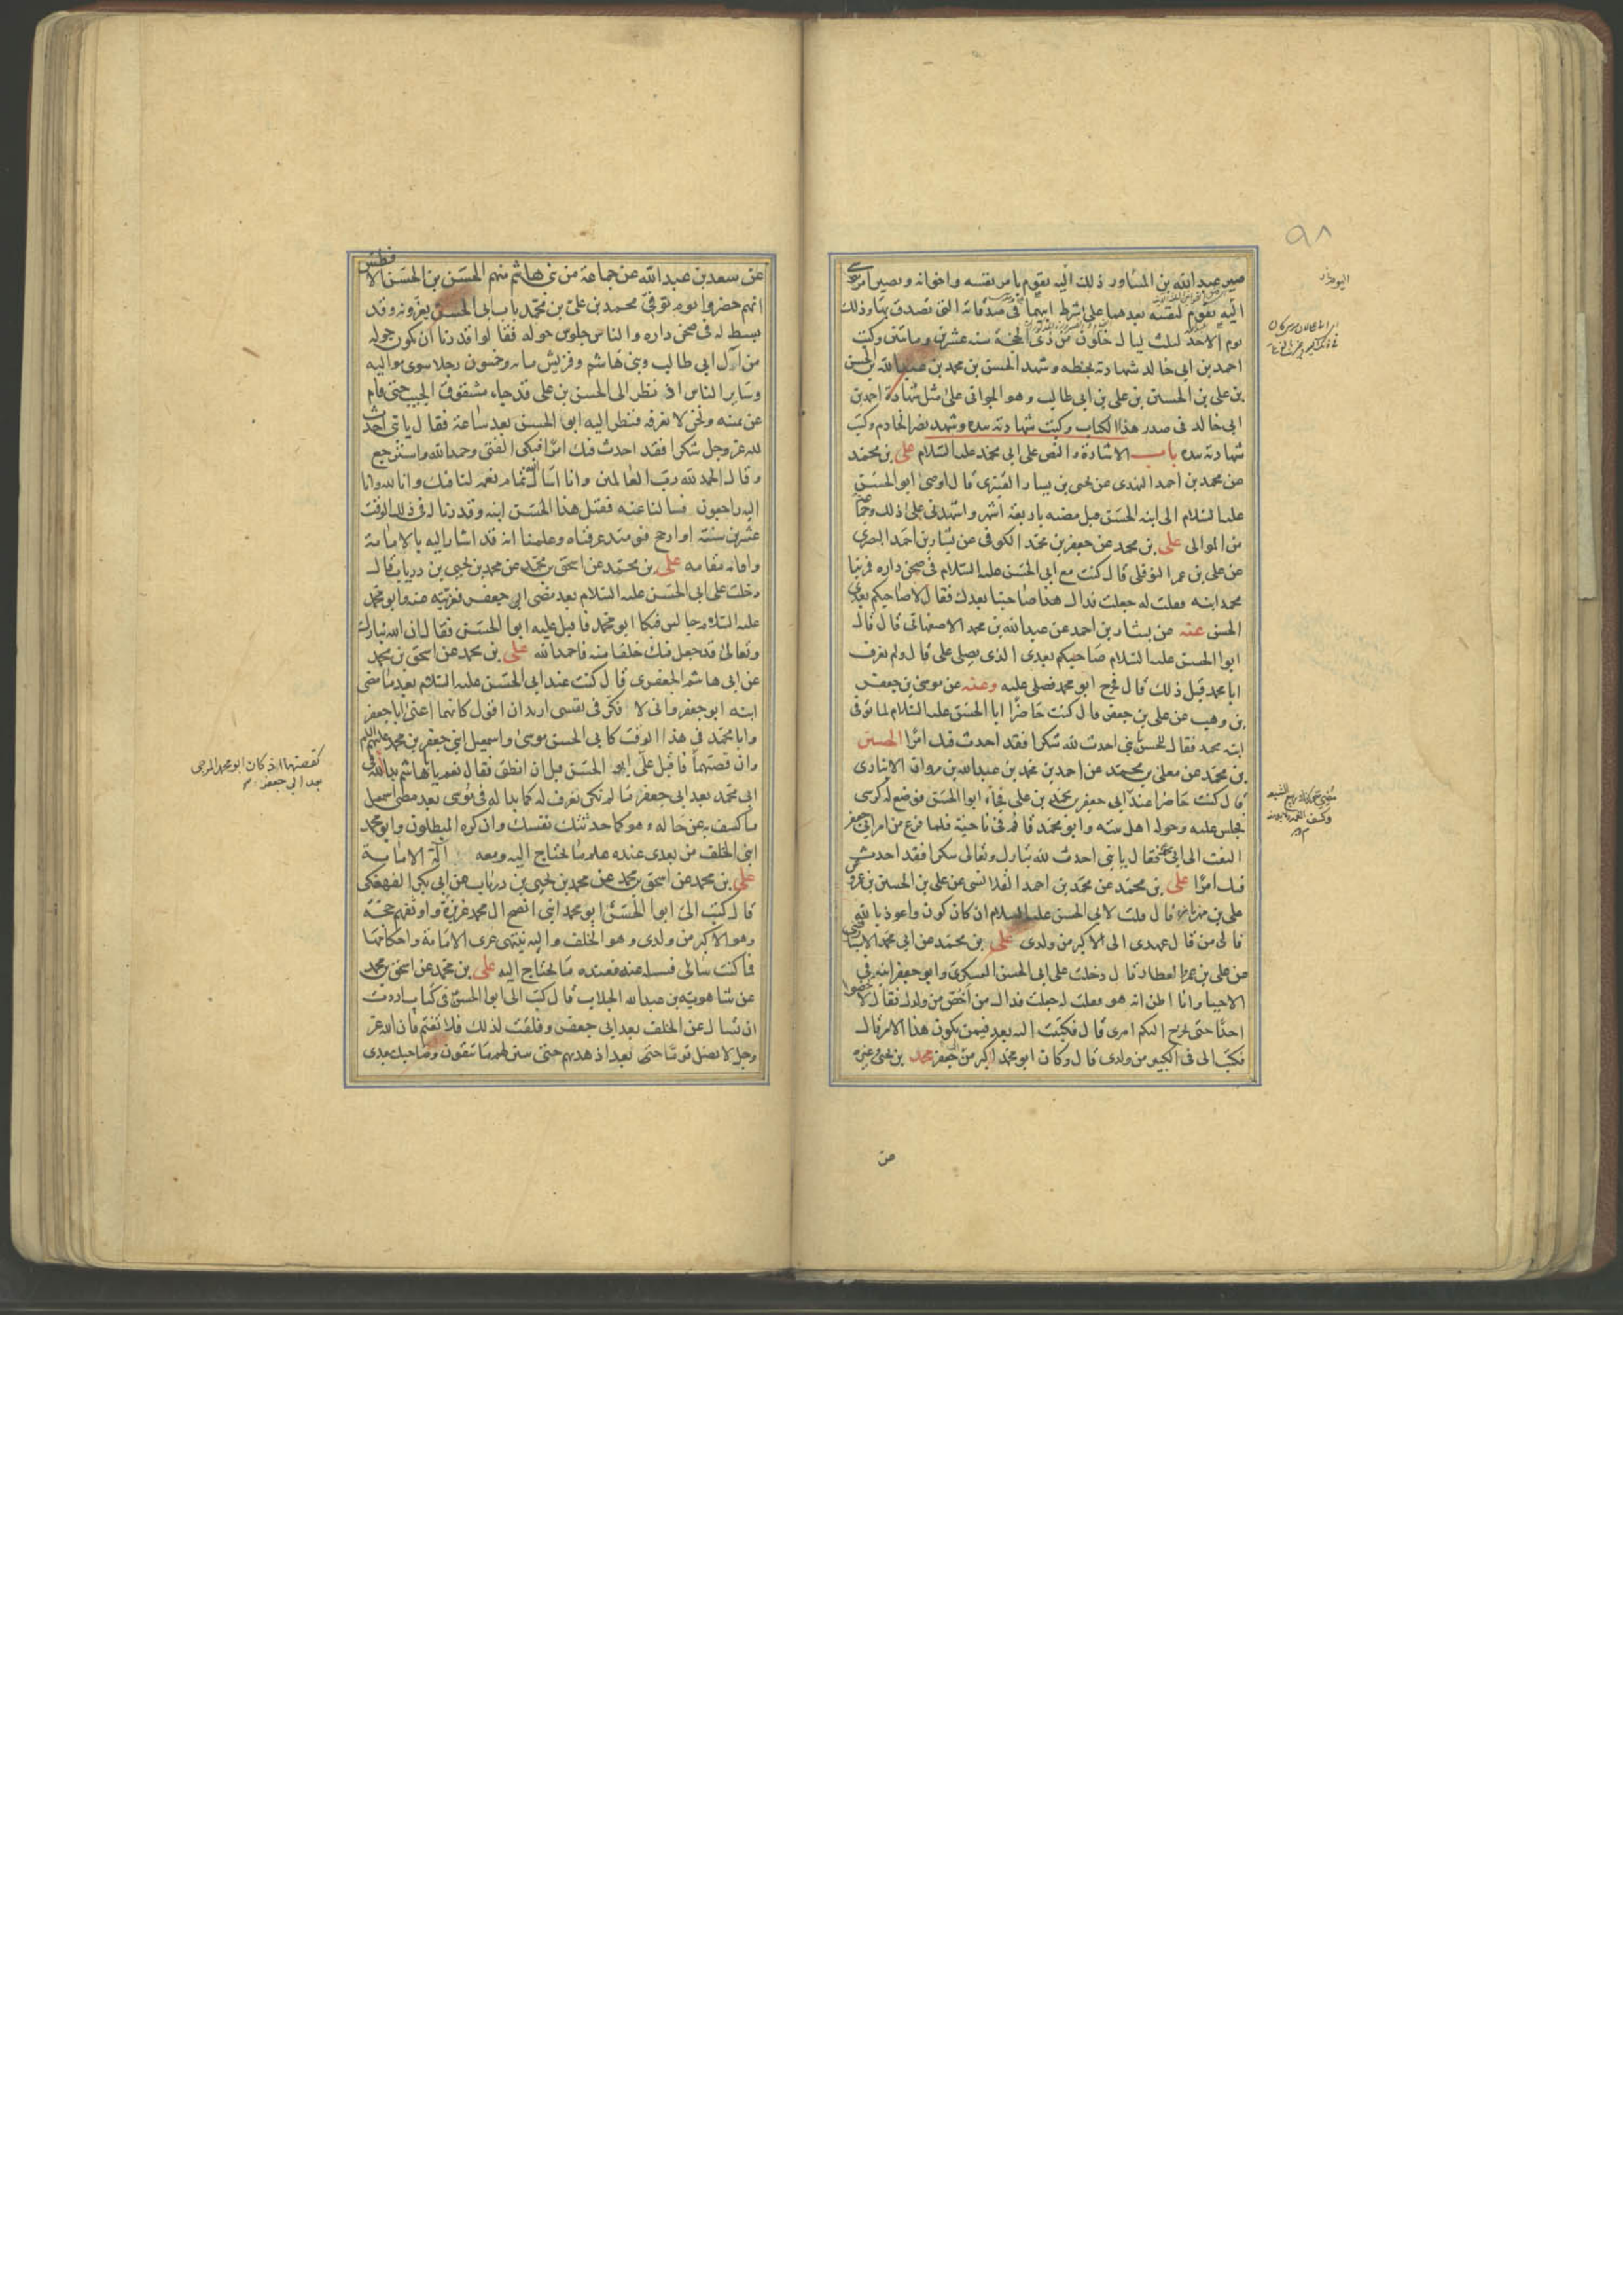 صير عبدالله بن المساور ذلك اليه يقوم بامر نفسه واخوانه ويصير امر موسى
اليه يقوم لنفسه بعدهما على شرط ابيهما فى صدقاته التى تصدق بها وذلك
يوم الاحد لثلث ليال خلون من ذى الحجة سنه عشرين وماتين وكتب
احمد بن ابى خالد شهادته بخطه وشهد الحسن بن محمد بن عبدالله بن الحسن
بن على بن الحسين بن على بن ابى طالب وهو الجوانى على مثل شهادة احمد بن
ابى خالد فى صدر هذا الكتاب وكتب شهادته بيده وشهد نصر الخادم وكتب
شهادته بيده باب الاشارة والنص على ابى محمد عليه السلام على بن محمد
عن محمد بن احمد النهدى عن يحيى بن يسار القنبرى قال اوصى ابو الحسن
عليه السلام الى ابنه الحسن قبل مضيه باربعة اشهر واشهدنى على ذلك وجماعة
من الموالى على بن محمد عن جعفر بن محمد الكوفى عن بشار بن احمد البصرى
عن على بن عمر النوفلى قال كنت مع ابى الحسن عليه السلام فى صحن داره فمر بنا
محمد ابنه فقلت له جعلت فداك هذا صاحبنا بعدك فقال لا صاحبكم بعدى
الحسن عنه عن بشار بن احمد عن عبدالله بن محمد الاصفهانى قال قال
ابو الحسن عليه السلام صاحبكم بعدى الذى يصلى على قال ولم نعرف
ابا محمد قبل ذلك قال فخرج ابو محمد فصلى عليه وعنه عن موسى بن جعفر
بن وهب عن على بن جعفر قال كنت حاضرا ابا الحسن عليه السلام لما توفى
ابنه محمد فقال للحسن يا بنى احدث لله شكرا فقد احدث فيك امرا الحسين
بن محمد عن معلى بن محمد عن احمد بن محمد بن عبدالله بن مروان الانبارى
قال كنت حاضرا عند ابى جعفر محمد بن على فجاء ابو الحسن فوضع له كرسى
فجلس عليه وحوله اهل بيته وابو محمد قائم فى ناحية فلما فرغ من امر ابى جعفر
التفت الى ابى محمد فقال يا بنى احدث لله تبارك وتعالى شكرا فقد احدث
فيك امرا على بن محمد عن محمد بن احمد القلانسى عن على بن الحسين بن عمرو عن
على بن مهزيار قال قلت لابى الحسن عليه السلام ان كان كون واعوذ بالله
فالى من قال عهدى الى الاكبر من ولدى على بن محمد عن ابى محمد الاسبارقينى
عن على بن عمرو العطار قال دخلت على ابى الحسن العسكرى وابو جعفر ابنه فى
الاحياء وانا اظن انه هو فقلت له جعلت فداك من اخص من ولدك فقال لا تخصوا
احدا حتى يخرج اليكم امرى قال فكتبت اليه بعد فيمن يكون هذا الامر قال
فكتب الى فى الكبير من ولدى قال وكان ابو محمد اكبر من جعفر محمد بن يحيى وغيره
من
عن سعد بن عبدالله عن جماعة من بنى هاشم منهم الحسن بن الحسن الافطس
انهم حضروا يوم توفى محمد بن على بن محمد باب ابى الحسن يعزونه وقد
بسط له فى صحن داره والناس جلوس حوله فقالوا قدرنا ان يكون حوله
من آل ابى طالب وبنى هاشم وقريش مايه وخمسون رجلا سوى مواليه
وساير الناس اذ نظر الى الحسن بن على قد جاء مشقوق الجيب حتى قام
عن يمينه ونحن لا نعرفه فنظر اليه ابو الحسن بعد ساعة فقال يا بنى احدث
لله عز وجل شكرا فقد احدث فيك امرا فبكى الفتى وحمد الله واسترجع
وقال الحمد لله رب العالمين وانا اسال الله تمام نعمه لنا فيك وانا لله وانا
اليه راجعون فسالنا عنه فقيل هذا الحسن ابنه وقدرنا له فى ذلك الوقت
عشرين سنة او ارجح فيومئذ عرفناه وعلمنا انه قد اشار اليه بالامامة
واقامه مقامه على بن محمد عن اسحق بن محمد عن محمد بن يحيى بن درياب قال
دخلت على ابى الحسن عليه السلام بعد مضى ابى جعفر فعزيته عنه وابو محمد
عليه السلام جالس فبكا ابو محمد فاقبل عليه ابو الحسن فقال ان الله تبارك
وتعالى قد جعل فيك خلفا منه فاحمد الله على بن محمد عن اسحق بن محمد
عن ابى هاشم الجعفرى قال كنت عند ابى الحسن عليه السلام بعد ما مضى
ابنه ابو جعفر وانى لا فكر فى نفسى اريد ان اقول كانهما اعنى ابا جعفر
وابا محمد فى هذا الوقت كابى الحسن موسى واسمعيل ابنى جعفر بن محمد عليهم السلام
وان قصتهما فاقبل على ابو الحسن قبل ان انطق فقال نعم يا ابا هاشم بدا لله فى
ابى محمد بعد ابى جعفر ما لم تكن يعرف له كما بدا له فى موسى بعد مضى اسمعيل
ما كشف به عن حاله وهو كما حدثتك نفسك وان كره المبطلون وابو محمد
ابنى الخلف من بعدى عنده علم ما يحتاج اليه ومعه آلة الامامة
على بن محمد عن اسحق بن محمد عن محمد بن يحيى بن درياب عن ابى بكر الفهفكى
قال كتب الى ابو الحسن ابو محمد ابنى انصح ال محمد غريزة واوثقهم حجة
وهو الاكبر من ولدى وهو الخلف واليه ينتهى عرى الامامة واحكامها
فما كنت سائلى فسله عنه فعنده ما يحتاج اليه على بن محمد عن اسحق بن محمد
عن شاهويه بن عبدالله الجلاب قال كتب الى ابو الحسن فى كتاب اردت
ان تسال عن الخلف بعد ابى جعفر وقلقت لذلك فلا تغتم فان الله عز
وجل لا يضل قوما حتى بعد اذ هديهم حتى يبين لهم ما يتقون وصاحبك بعدى
كقصتهما اذ كان ابو محمد المرجى
بعد ابى جعفر